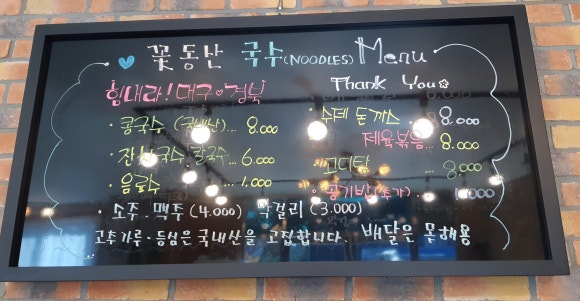 꽃동산 국수(NOODLES) Menu
힘내라! 대구♥경북 Thank You
· 콩국수 (국내산)... 8.000 · 수제 돈까스 . 8.000
제육볶음... 8.000
· 잔치국수. 칼국수... 6.000
고디탕 ... 8.000
· 음료수 ... 1.000 · 공기밥(추가) 1.000
· 소주. 맥주 (4.000) 막걸리 (3.000)
고추가루·등심은 국내산을 고집합니다. 배달은 못해용